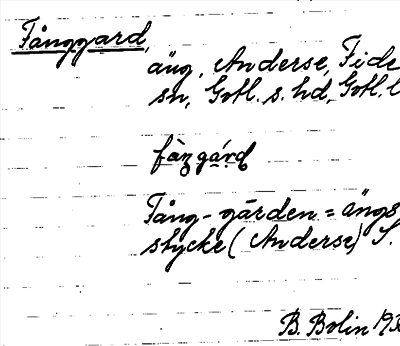 Fånggard,
äng, Anderse, Fide
sn, Gotl. s. hd, Gotl. l
fàŋgá̩rd
Fång-gården = ängs
stycke (Anderse) S.
B. Bolin 193